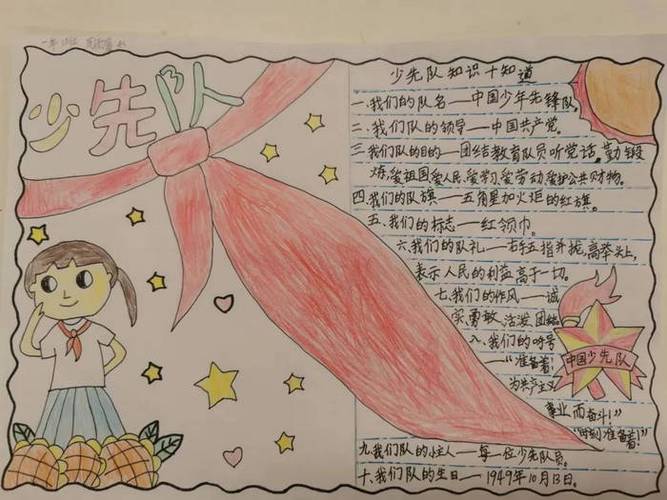 少先队
少先队知识十知道
一、我们的队名——中国少年先锋队。
二、我们队的领导——中国共产党。
三、我们队的目的——团结教育队员听党话。勤锻
炼,爱祖国,爱人民,爱学习,爱劳动,爱护公共财物。
四、我们的队旗——五角星加火炬的红旗。
五、我们的标志——红领巾。
六、我们的队礼——右手五指并拢,高举头上,
表示人民的利益高于一切。
七、我们的作风——诚
实、勇敢、活泼、团结。
八、我们的呼号
——“准备着!
为共产主义
事业而奋斗!”
“时刻准备着!”
中国少先队
九、我们队的主人——每一位少先队员。
十、我们队的生日——1949年10月13日。